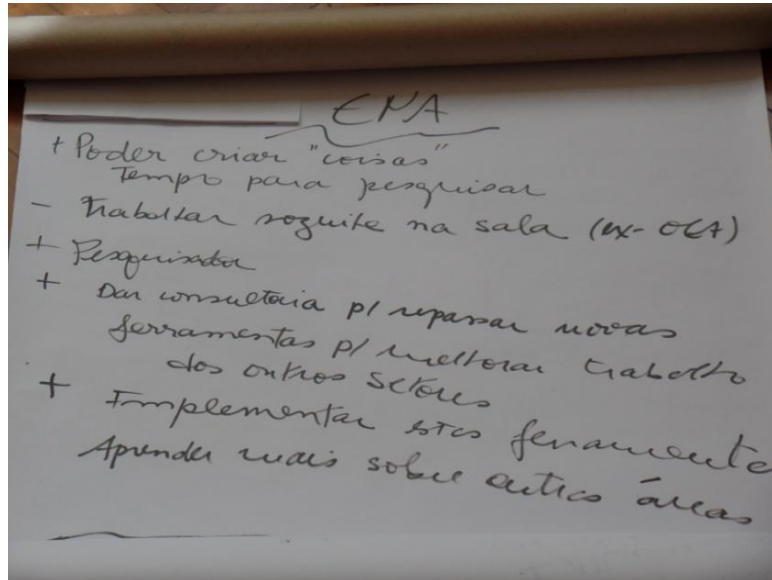 ENA
+ Poder criar "coisas"
Tempo para pesquisar
- Trabalhar sozinho na sala (ex-OEA)
+ Pesquisador
+ Dar consultoria p/ repassar novas
ferramentas p/ melhorar trabalho
dos outros setores
+ Implementar estas ferramente
Aprender mais sobre outras áreas